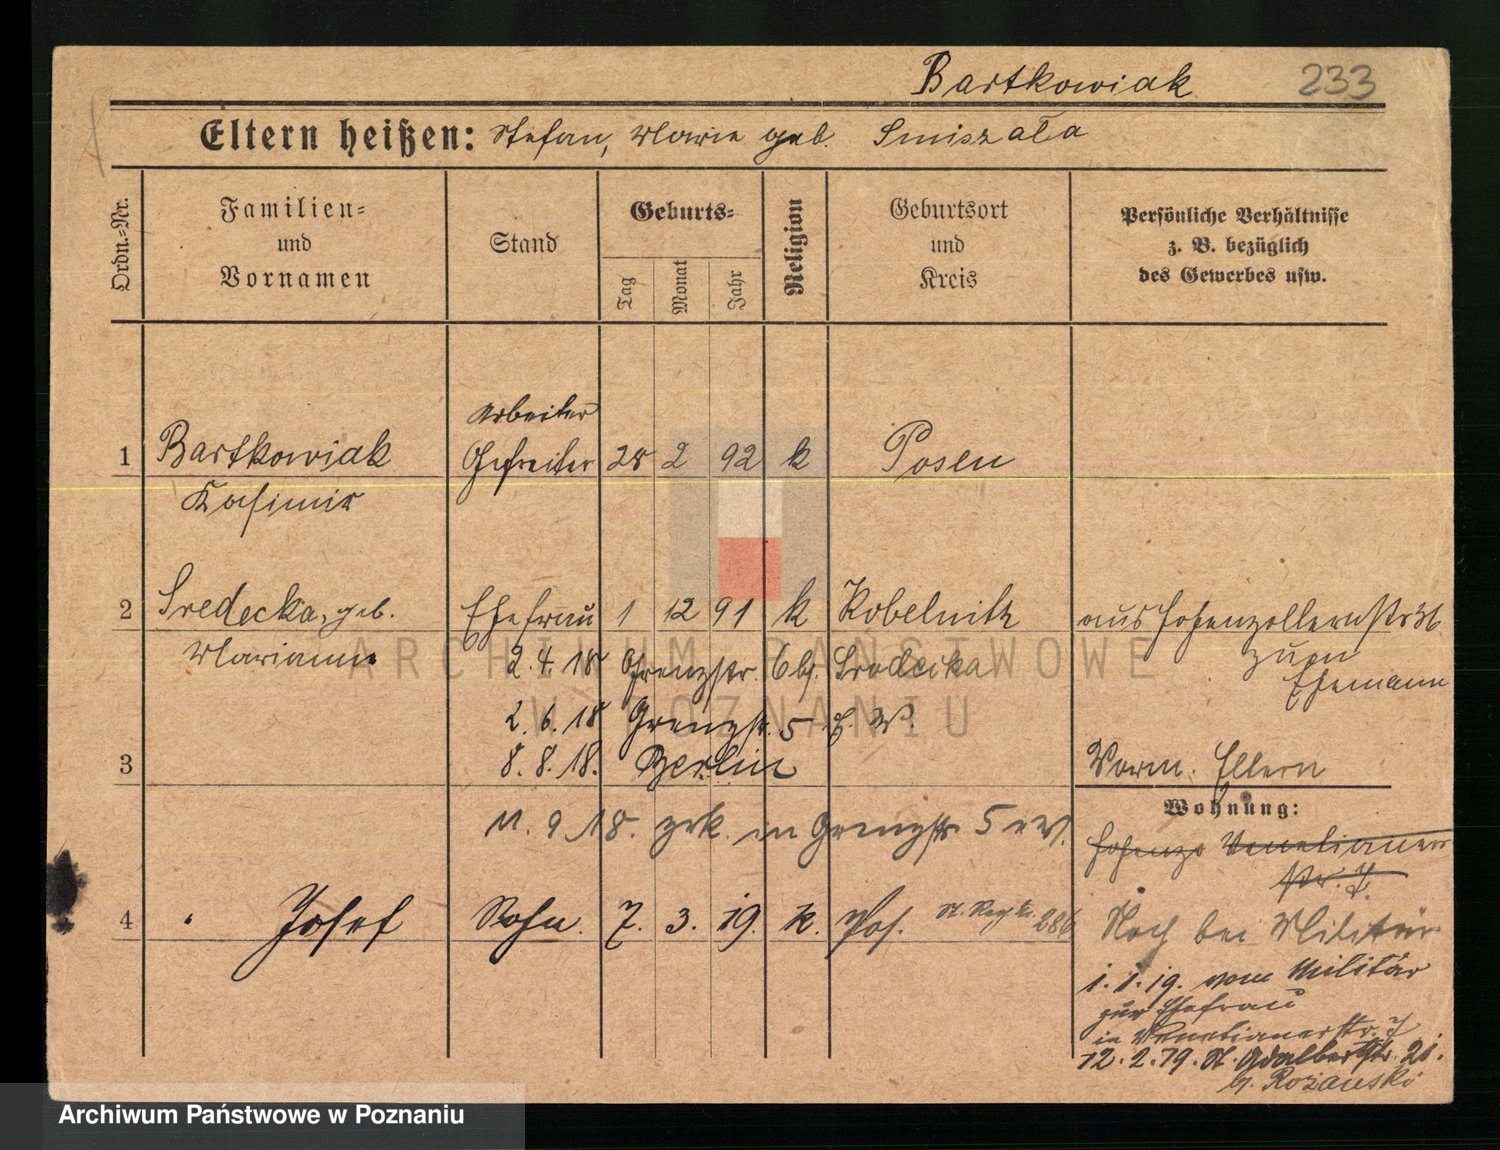 Bartkowiak 233
Eltern heißen: Stefan, Marie geb. Smiszała
Ordn.=Nr.
Familien=
und
Vornamen
Stand
Geburts=
Tag
Monat
Jahr
Religion
Geburtsort
und
Kreis
Persönliche Verhältnisse
z. B. bezüglich
des Gewerbes usw.
Arbeiter
1 Bartkowiak Gefreiter 28 2 92 k Posen
Kasimir
2 Sredecka, geb. Ehefrau 1 12 91 k Kobelnitz aus Hohenzollernstr 36
Marianne 2. 4. 18 Grenzstr. 6 bj. Srodecka zum
Ehemann
2. 6. 18 Grenzstr. 5 E. W.
3 8. 8. 18. Berlin Vorm. Eltern
Wohnung:
11. 9. 18. zrk. in Grenzstr. 5 E W.
Hohenzo Venetianer
str. 7
4 " Josef Sohn. 7. 3. 19. k. Pos. St. Reg. 286 Noch bei Militär
1. 1. 19. vom Militär
zur Ehefrau
in Venetianerstr. 7
12. 2. 19. St. Adalbertstr. 21.
bj. Rożanski
ARCHIWUM PAŃSTWOWE
W POZNANIU
Archiwum Państwowe w Poznaniu